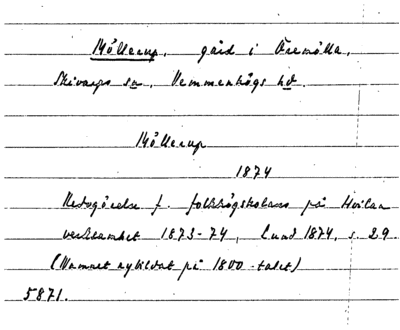 Möllerup, gård i Öremölla,
Skivarps sn, Vemmenhögs hd.
Möllerup
1874
Redogörelse f. folkhögskolans på Hvilan
verksamhet 1873-74, Lund 1874, s. 29
(Namnet nybildat på 1800-talet)
5871.